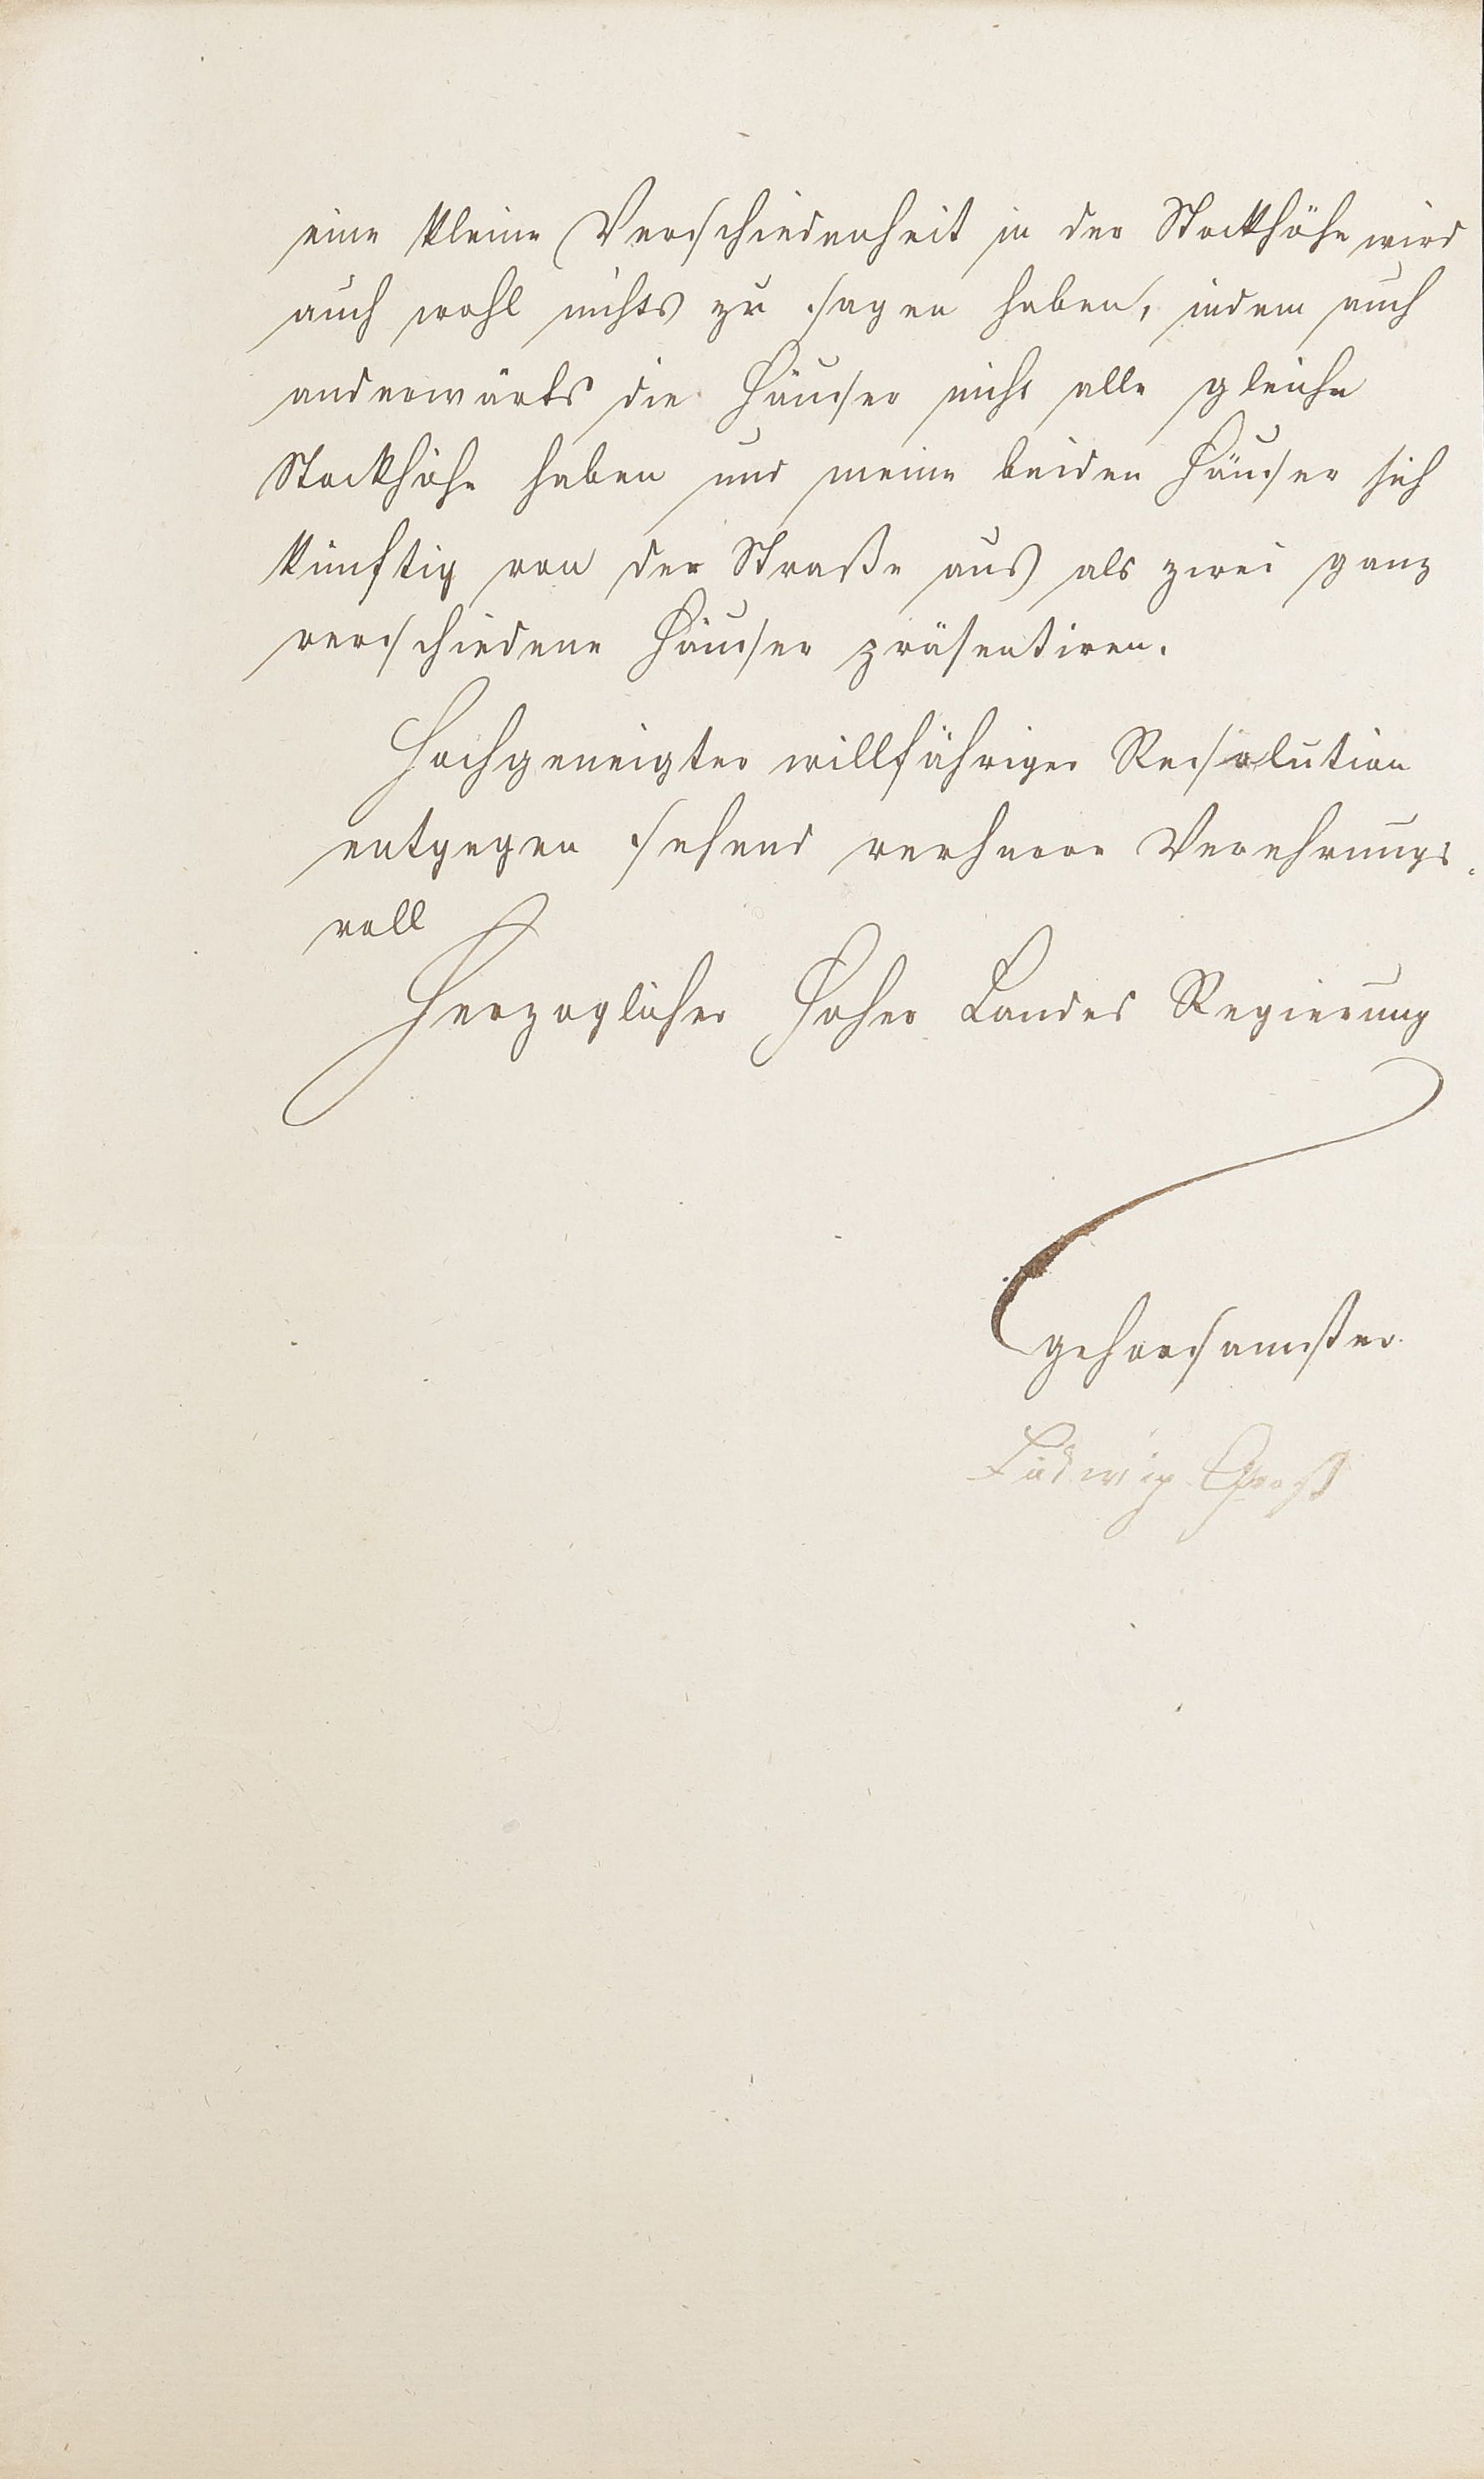 eine kleine Verschiedenheit in der Stockhöhe wird
auch wohl nichts zu sagen haben, indem auch
anderwärts die Häuser nicht alle gleiche
Stockhöhe haben und meine beiden Häuser sich
künftig von der Straße aus als zwei ganz
verschiedene Häuser präsentiren.
Hochgeneigter willfähriger Resolution
entgegen sehend verharre Verehrungs-
voll
Herzoglicher Hoher Landes Regierung
gehorsamster
Ludwig